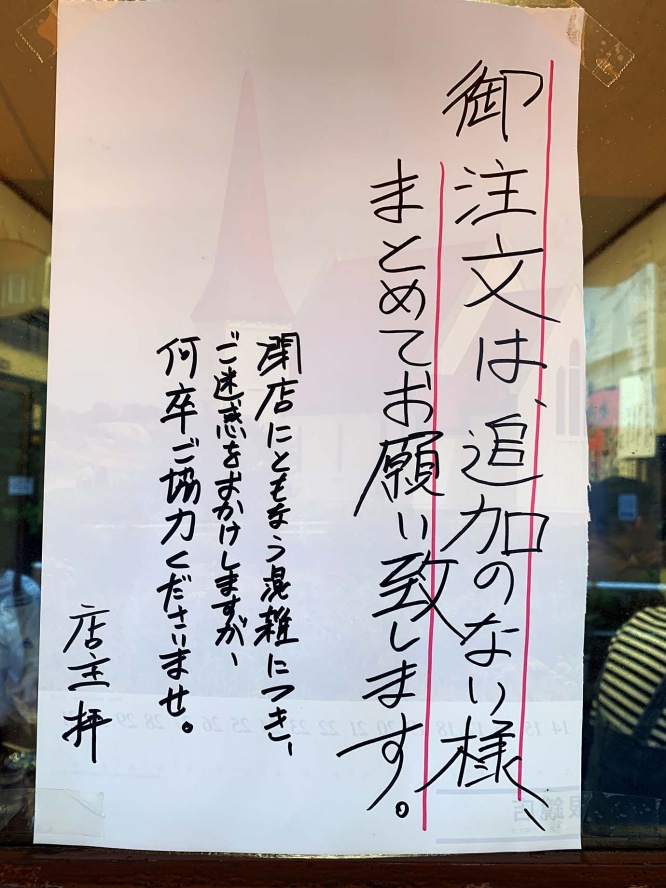 御注文は、追加のない様、
まとめてお願い致します。
閉店にともなう混雑につき、
ご迷惑をおかけしますが、
何卒ご協力くださいませ。
店主 拝